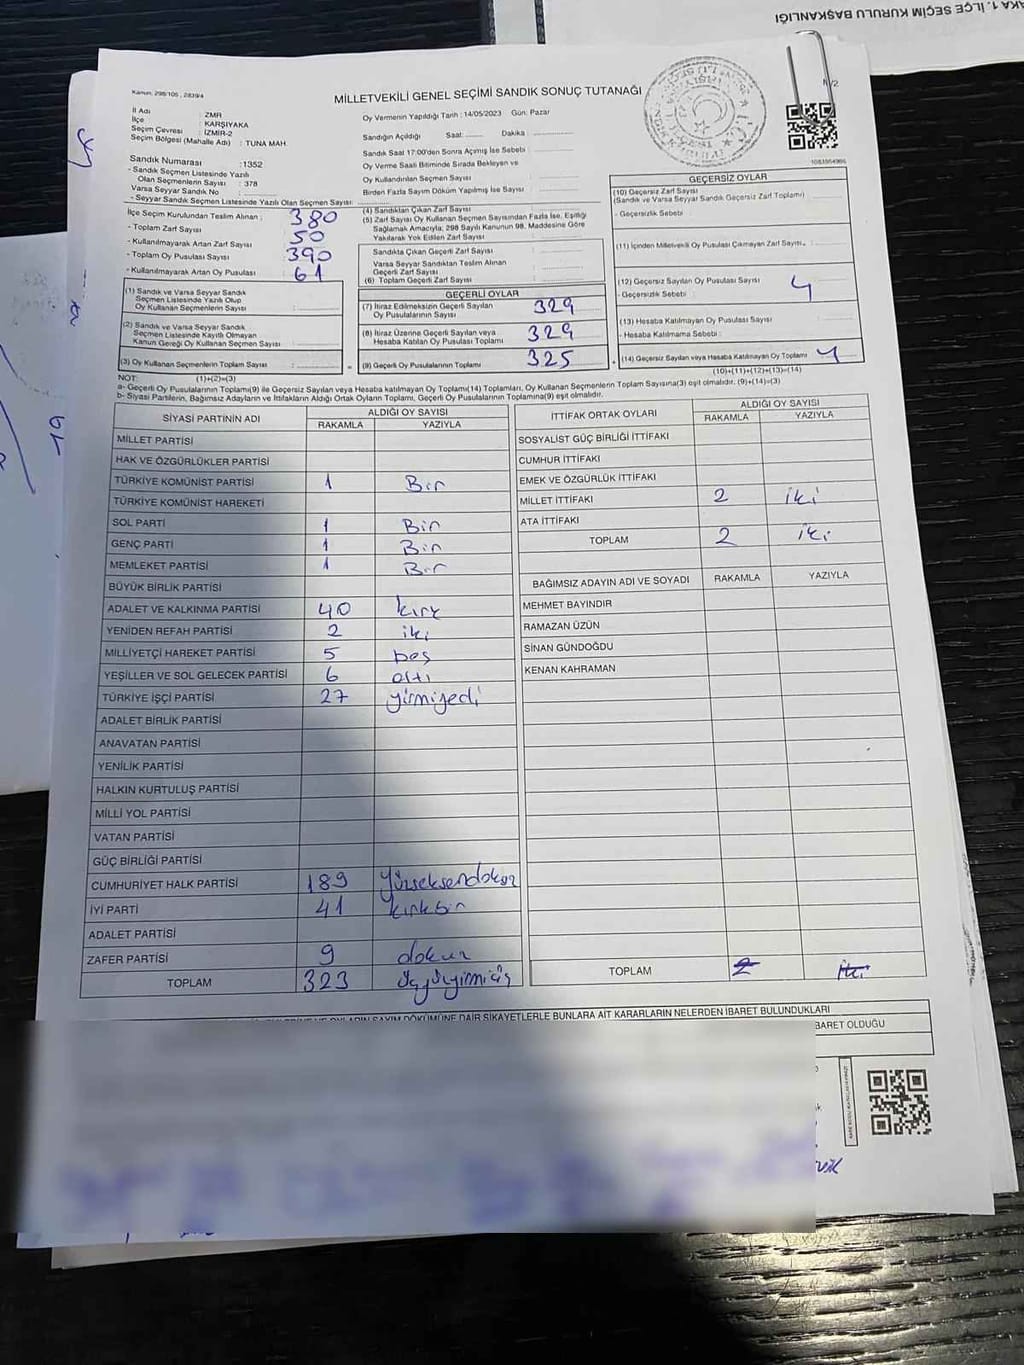 Kanun: 298/105 , 2839/4
MİLLETVEKİLİ GENEL SEÇİMİ SANDIK SONUÇ TUTANAĞI
İl Adı : ZMR
İlçe : KARŞIYAKA
Seçim Çevresi : İZMİR-2
Seçim Bölgesi (Mahalle Adı) : TUNA MAH.
Sandık Numarası : 1352
- Sandık Seçmen Listesinde Yazılı
Olan Seçmenlerin Sayısı : 378
Varsa Seyyar Sandık No :
- Seyyar Sandık Seçmen Listesinde Yazılı Olan Seçmen Sayısı:
Oy Vermenin Yapıldığı Tarih : 14/05/2023 Gün: Pazar
Sandığın Açıldığı Saat: Dakika :
Sandık Saat 17:00'den Sonra Açımış İse Sebebi :
Oy Verme Saati Bitiminde Sırada Bekleyen ve
Oy Kullandırılan Seçmen Sayısı :
Birden Fazla Sayım Döküm Yapılmış İse Sayısı :
İlçe Seçim Kurulundan Teslim Alınan :
- Toplam Zarf Sayısı : 380
- Kullanılmayarak Artan Zarf Sayısı : 50
- Toplam Oy Pusulası Sayısı : 390
- Kullanılmayarak Artan Oy Pusulası : 61
(1) Sandık ve Varsa Seyyar Sandık
Seçmen Listesinde Yazılı Olup
Oy Kullanan Seçmenlerin Sayısı :
(2) Sandık ve Varsa Seyyar Sandık
Seçmen Listesinde Kayıtlı Olmayan
Kanun Gereği Oy Kullanan Seçmen Sayısı :
(3) Oy Kullanan Seçmenlerin Toplam Sayısı :
(4) Sandıktan Çıkan Zarf Sayısı :
(5) Zarf Sayısı Oy Kullanan Seçmen Sayısından Fazla İse, Eşitliği
Sağlamak Amacıyla; 298 Sayılı Kanunun 98. Maddesine Göre
Yakılarak Yok Edilen Zarf Sayısı :
Sandıkta Çıkan Geçerli Zarf Sayısı :
Varsa Seyyar Sandıktan Teslim Alınan
Geçerli Zarf Sayısı :
(6) Toplam Geçerli Zarf Sayısı :
GEÇERLİ OYLAR
(7) İtiraz Edilmeksizin Geçerli Sayılan
Oy Pusulalarının Sayısı : 329
(8) İtiraz Üzerine Geçerli Sayılan veya
Hesaba Katılan Oy Pusulası Toplamı : 329
(9) Geçerli Oy Pusulalarının Toplamı : 325
GEÇERSİZ OYLAR
(10) Geçersiz Zarf Sayısı
(Sandık ve Varsa Seyyar Sandık Geçersiz Zarf Toplamı)
- Geçersizlik Sebebi :
(11) İçinden Milletvekili Oy Pusulası Çıkmayan Zarf Sayısı. :
(12) Geçersiz Sayılan Oy Pusulası Sayısı : 4
- Geçersizlik Sebebi :
(13) Hesaba Katılmayan Oy Pusulası Sayısı :
- Hesaba Katılmama Sebebi :
(14) Geçersiz Sayılan veya Hesaba Katılmayan Oy Toplamı : 4
NOT: (1)+(2)=(3) (10)+(11)+(12)+(13)=(14)
a- Geçerli Oy Pusulalarının Toplamı(9) ile Geçersiz Sayılan veya Hesaba katılmayan Oy Toplamı(14) Toplamları, Oy Kullanan Seçmenlerin Toplam Sayısına(3) eşit olmalıdır. (9)+(14)=(3)
b- Siyasi Partilerin, Bağımsız Adayların ve İttifakların Aldığı Ortak Oyların Toplamı, Geçerli Oy Pusulalarının Toplamına(9) eşit olmalıdır.
SİYASİ PARTİNİN ADI ALDIĞI OY SAYISI
RAKAMLA YAZIYLA
MİLLET PARTİSİ
HAK VE ÖZGÜRLÜKLER PARTİSİ
TÜRKİYE KOMÜNİST PARTİSİ 1 Bir
TÜRKİYE KOMÜNİST HAREKETİ
SOL PARTİ 1 Bir
GENÇ PARTİ 1 Bir
MEMLEKET PARTİSİ 1 Bir
BÜYÜK BİRLİK PARTİSİ
ADALET VE KALKINMA PARTİSİ 40 kırk
YENİDEN REFAH PARTİSİ 2 iki
MİLLİYETÇİ HAREKET PARTİSİ 5 beş
YEŞİLLER VE SOL GELECEK PARTİSİ 6 altı
TÜRKİYE İŞÇİ PARTİSİ 27 yirmiyedi
ADALET BİRLİK PARTİSİ
ANAVATAN PARTİSİ
YENİLİK PARTİSİ
HALKIN KURTULUŞ PARTİSİ
MİLLİ YOL PARTİSİ
VATAN PARTİSİ
GÜÇ BİRLİĞİ PARTİSİ
CUMHURİYET HALK PARTİSİ 189 yüzseksendokuz
İYİ PARTİ 41 kırkbir
ADALET PARTİSİ
ZAFER PARTİSİ 9 dokuz
TOPLAM 323 üçyüzyirmiüç
İTTİFAK ORTAK OYLARI ALDIĞI OY SAYISI
RAKAMLA YAZIYLA
SOSYALİST GÜÇ BİRLİĞİ İTTİFAKI
CUMHUR İTTİFAKI
EMEK VE ÖZGÜRLÜK İTTİFAKI
MİLLET İTTİFAKI 2 iki
ATA İTTİFAKI
TOPLAM 2 iki
BAĞIMSIZ ADAYIN ADI VE SOYADI RAKAMLA YAZIYLA
MEHMET BAYINDIR
RAMAZAN ÜZÜN
SİNAN GÜNDOĞDU
KENAN KAHRAMAN
TOPLAM 2 iki
SAYIM DÖKÜMÜNE DAİR ŞİKAYETLERLE BUNLARA AİT KARARLARIN NELERDEN İBARET BULUNDUKLARI
BARET OLDUĞU